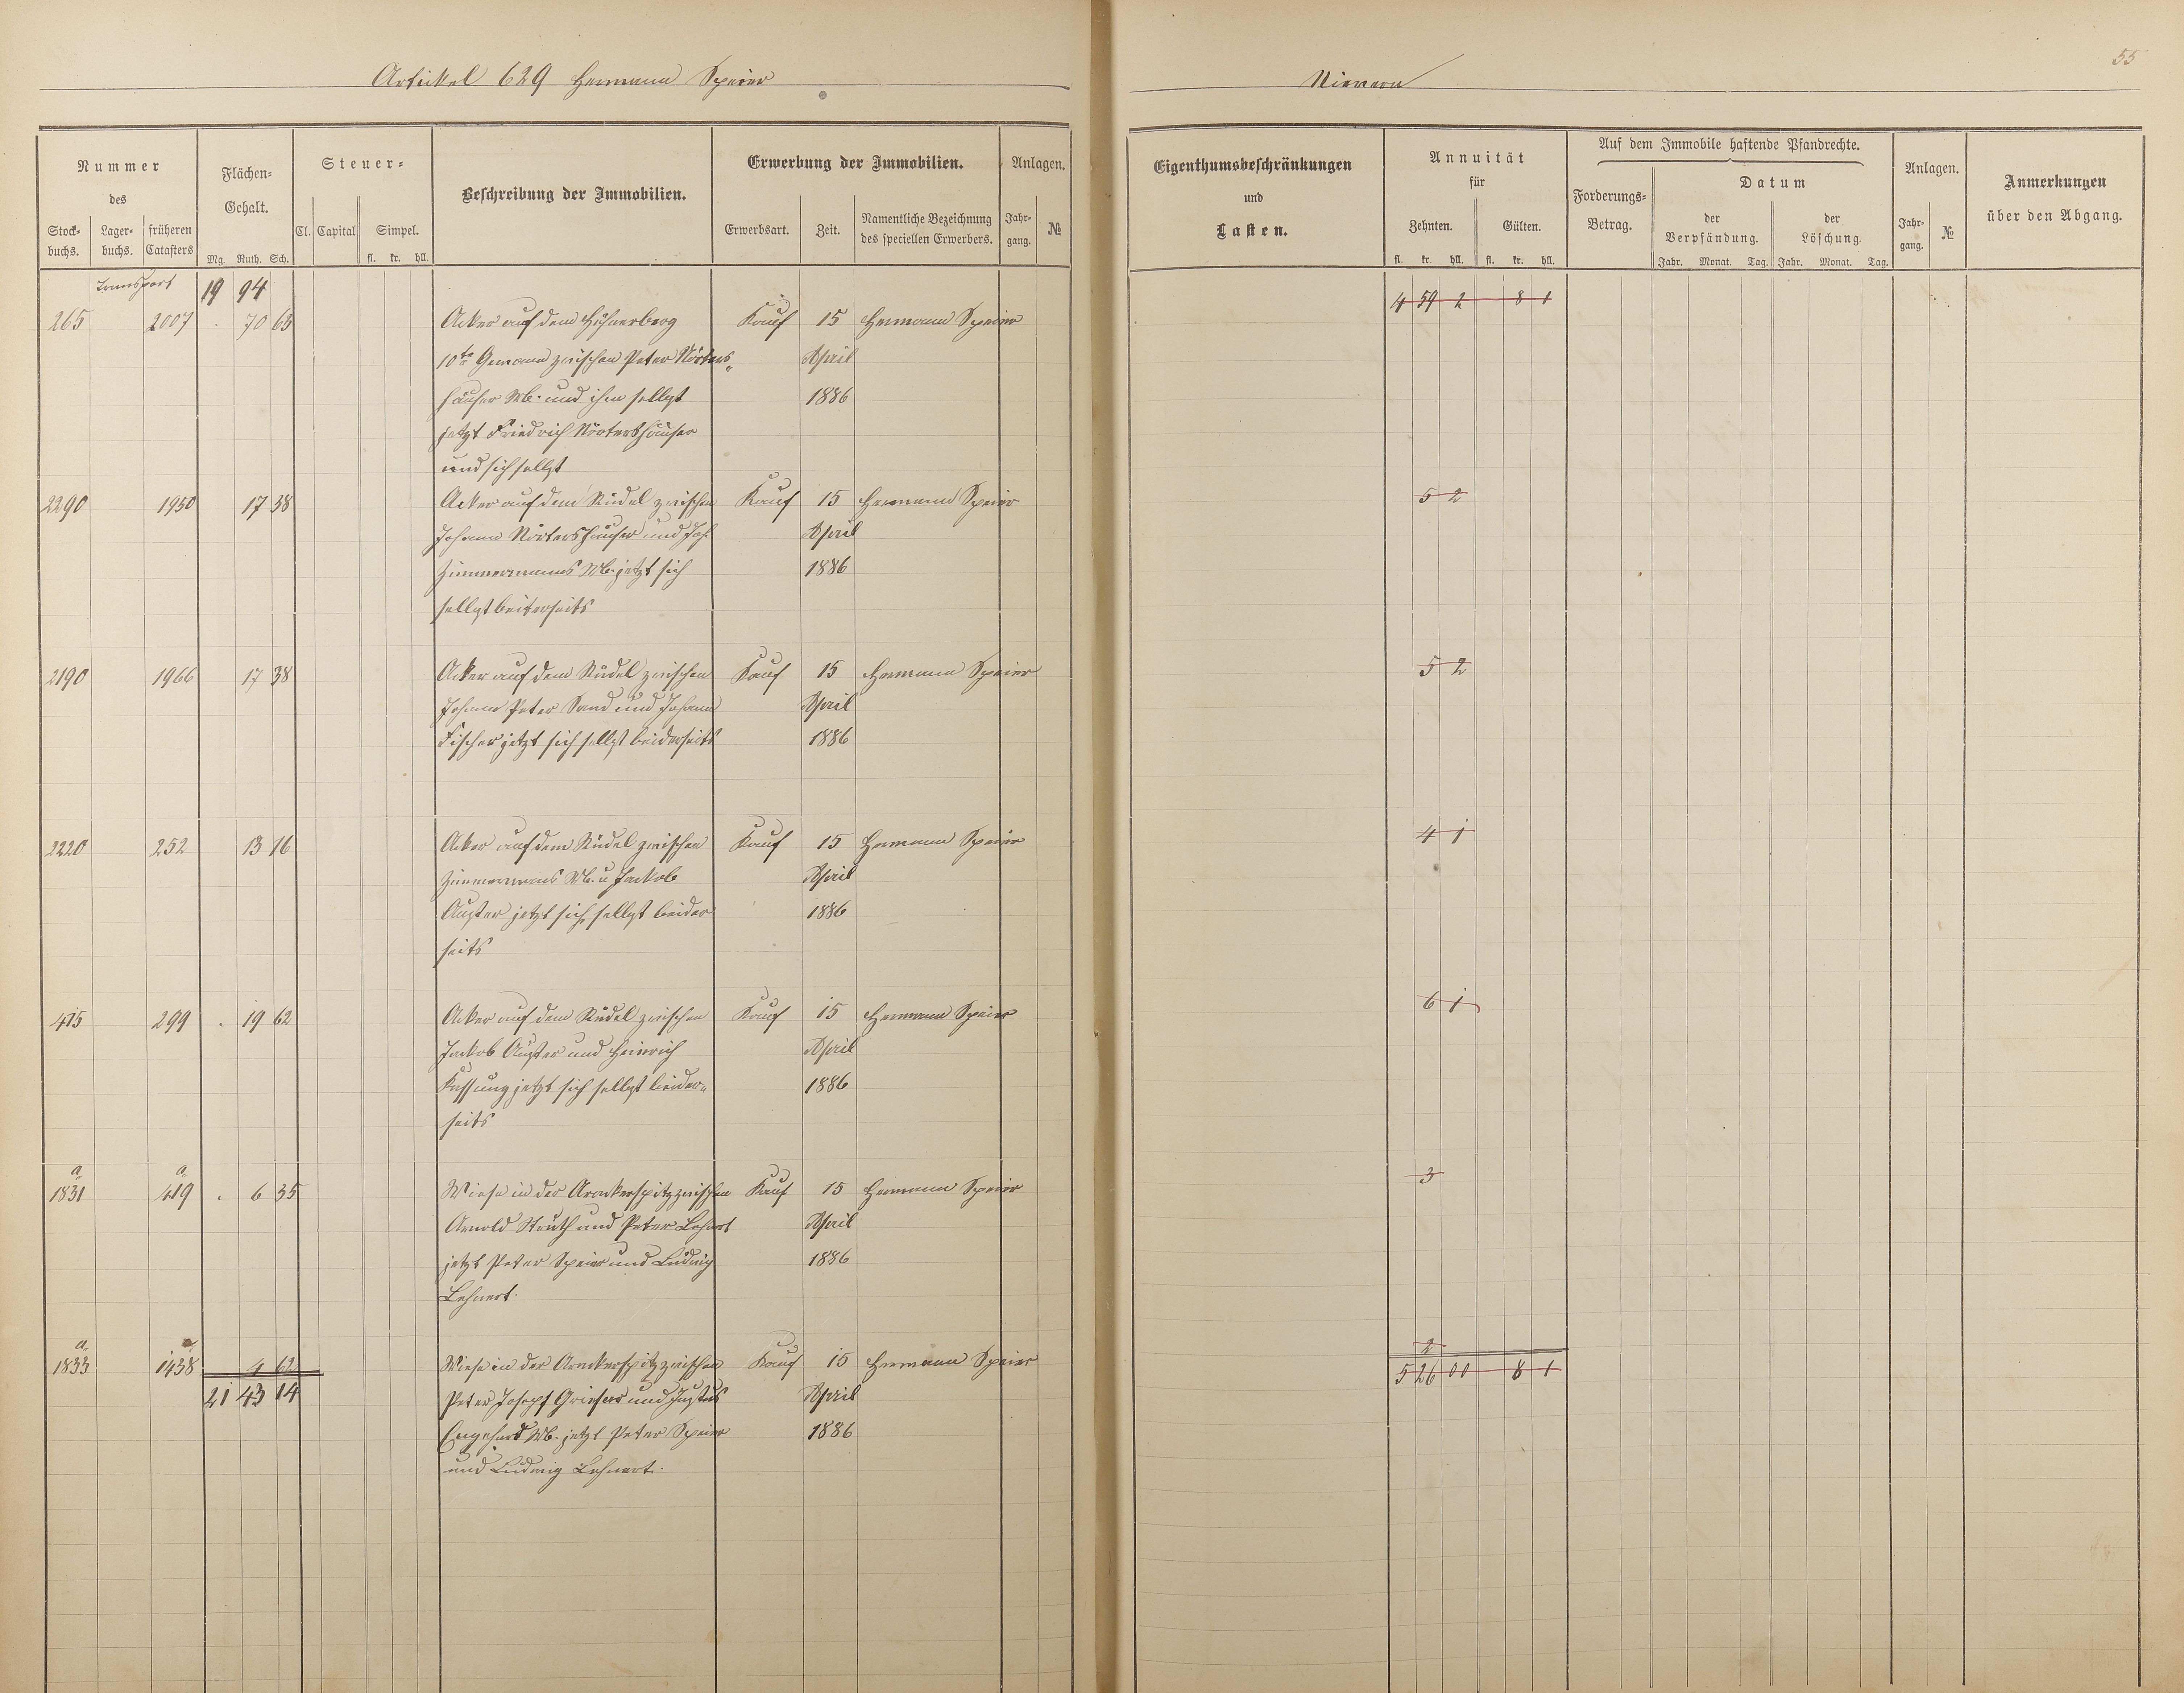 Artikel 629 Hermann Speier
Nievern
55
Nummer
des
Stock-
buchs.
Lager-
buchs.
früheren
Catasters
Flächen-
Gehalt.
Mg. Ruth. Sch.
Steuer-
Cl. Capital Simpel.
fl. kr. hll.
Beschreibung der Immobilien.
Erwerbung der Immobilien.
Erwerbsart. Zeit. Namentliche Bezeichnung
des speciellen Erwerbers.
Anlagen.
Jahr-
gang. №
Eigenthumsbeschränkungen
und
Lasten.
Annuität
für
Zehnten. Gülten.
fl. kr. hll. fl. kr. hll.
Auf dem Immobile haftende Pfandrechte.
Forderungs-
Betrag.
Datum
der
Verpfändung.
der
Löschung.
Jahr. Monat. Tag. Jahr. Monat. Tag.
Anlagen.
Jahr-
gang. №
Anmerkungen
über den Abgang.
Transport 19 94 4 59 2 8 1
265 2007 . 70 63 Acker auf dem Höhnerberg Kauf 15 Hermann Speier
10te Gewann zwischen Peter Nörters„ April
häuser Wb. und ihm selbst 1886
jetzt Friedrich Nörtershäuser
und sich selbst
2290 1950 17 38 Acker auf dem Rüdel zwischen Kauf 15 Hermann Speier 5 2
Johann Nörtershäuser und Joh. April
Zimmermanns Wb. jetzt sich 1886
selbst beiterseits
2190 1966 17 38 Acker auf dem Rüdel zwischen Kauf 15 Hermann Speier 5 2
Johann Peter Sand und Johann April
Fischer jetzt sich selbst beiderseits 1886
2220 252 13 16 Acker auf dem Rüdel zwischen Kauf 15 Hermann Speier 4 1
Zimmermanns Wb. u Jackob April
Auster jetzt sich selbst beider 1886
seits
415 299 . 19 62 Acker auf dem Rüdel zwischen Kauf 15 Hermann Speier 6 1
Jackob Auster und Heinrich April
jetzt sich selbst beider„ 1886
seits
a a
1831 419 . 6 35 Wiese in der zwischen Kauf 15 Hermann Speier 3
Arnold Struth und Peter Lehnert April
jetzt Peter Speier und Ludwig 1886
Lehnert.
a a
1833 1438 4 62 Wiese in der zwischen Kauf 15 Hermann Speier 2
21 43 14 Peter Josepf Grieser und Justus April 5 26 00 8 1
Engehard Wb. jetzt Peter Speier 1886
und Ludwig Lehnert.